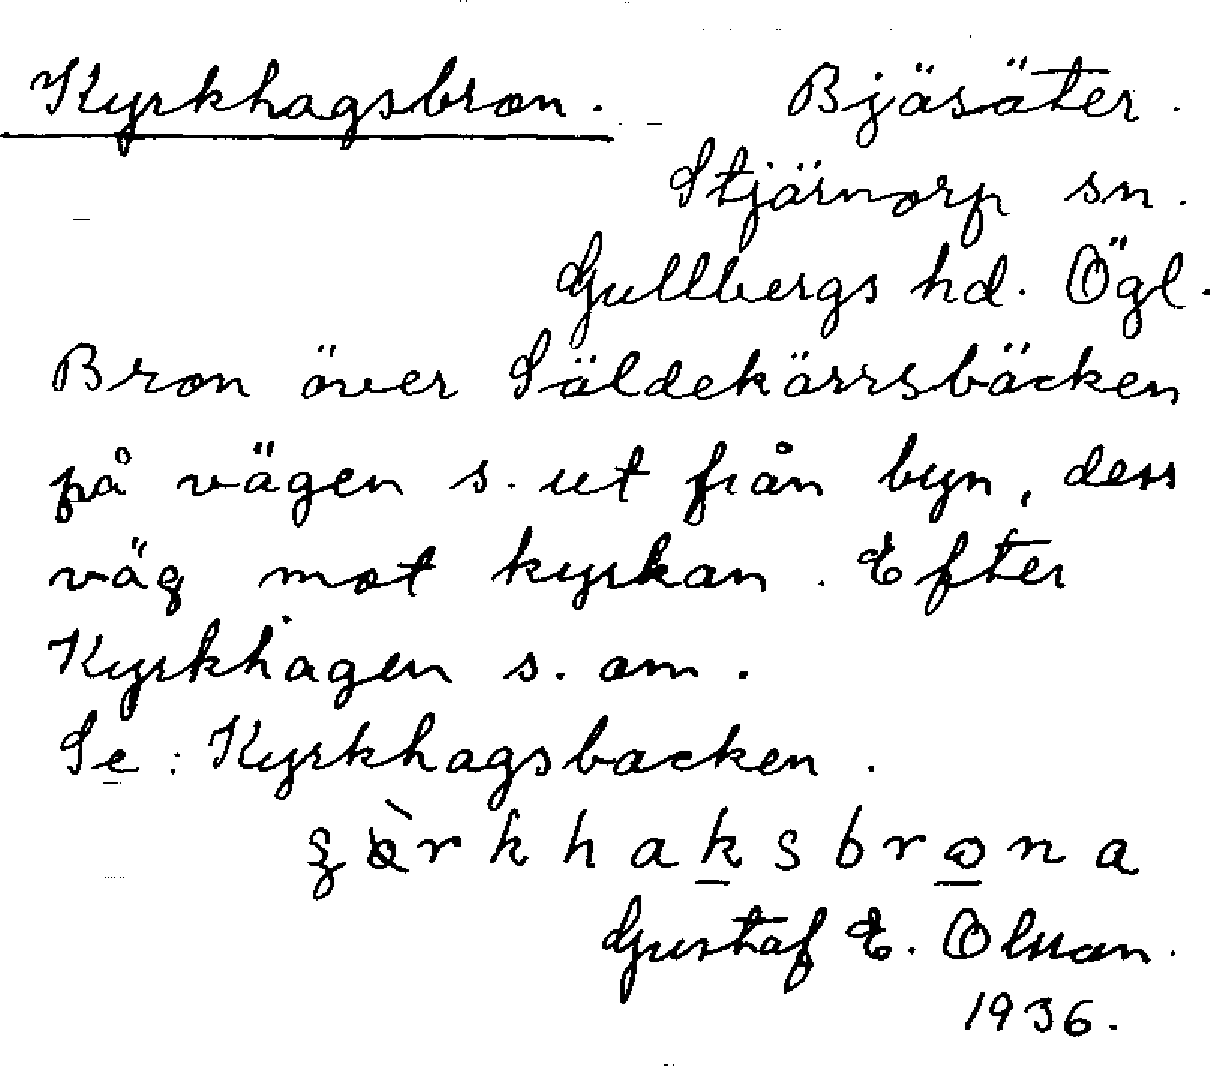 Kyrkhagsbron. Bjäsäter.
Stjärnorp sn.
Gullbergs hd. Ögl.
Bron över Säldekärrsbäcken
på vägen s. ut från byn, dess
väg mot kyrkan. Efter
Kyrkhagen s. om.
Se: Kyrkhagsbacken.
Gustaf E. Olsson.
1936.